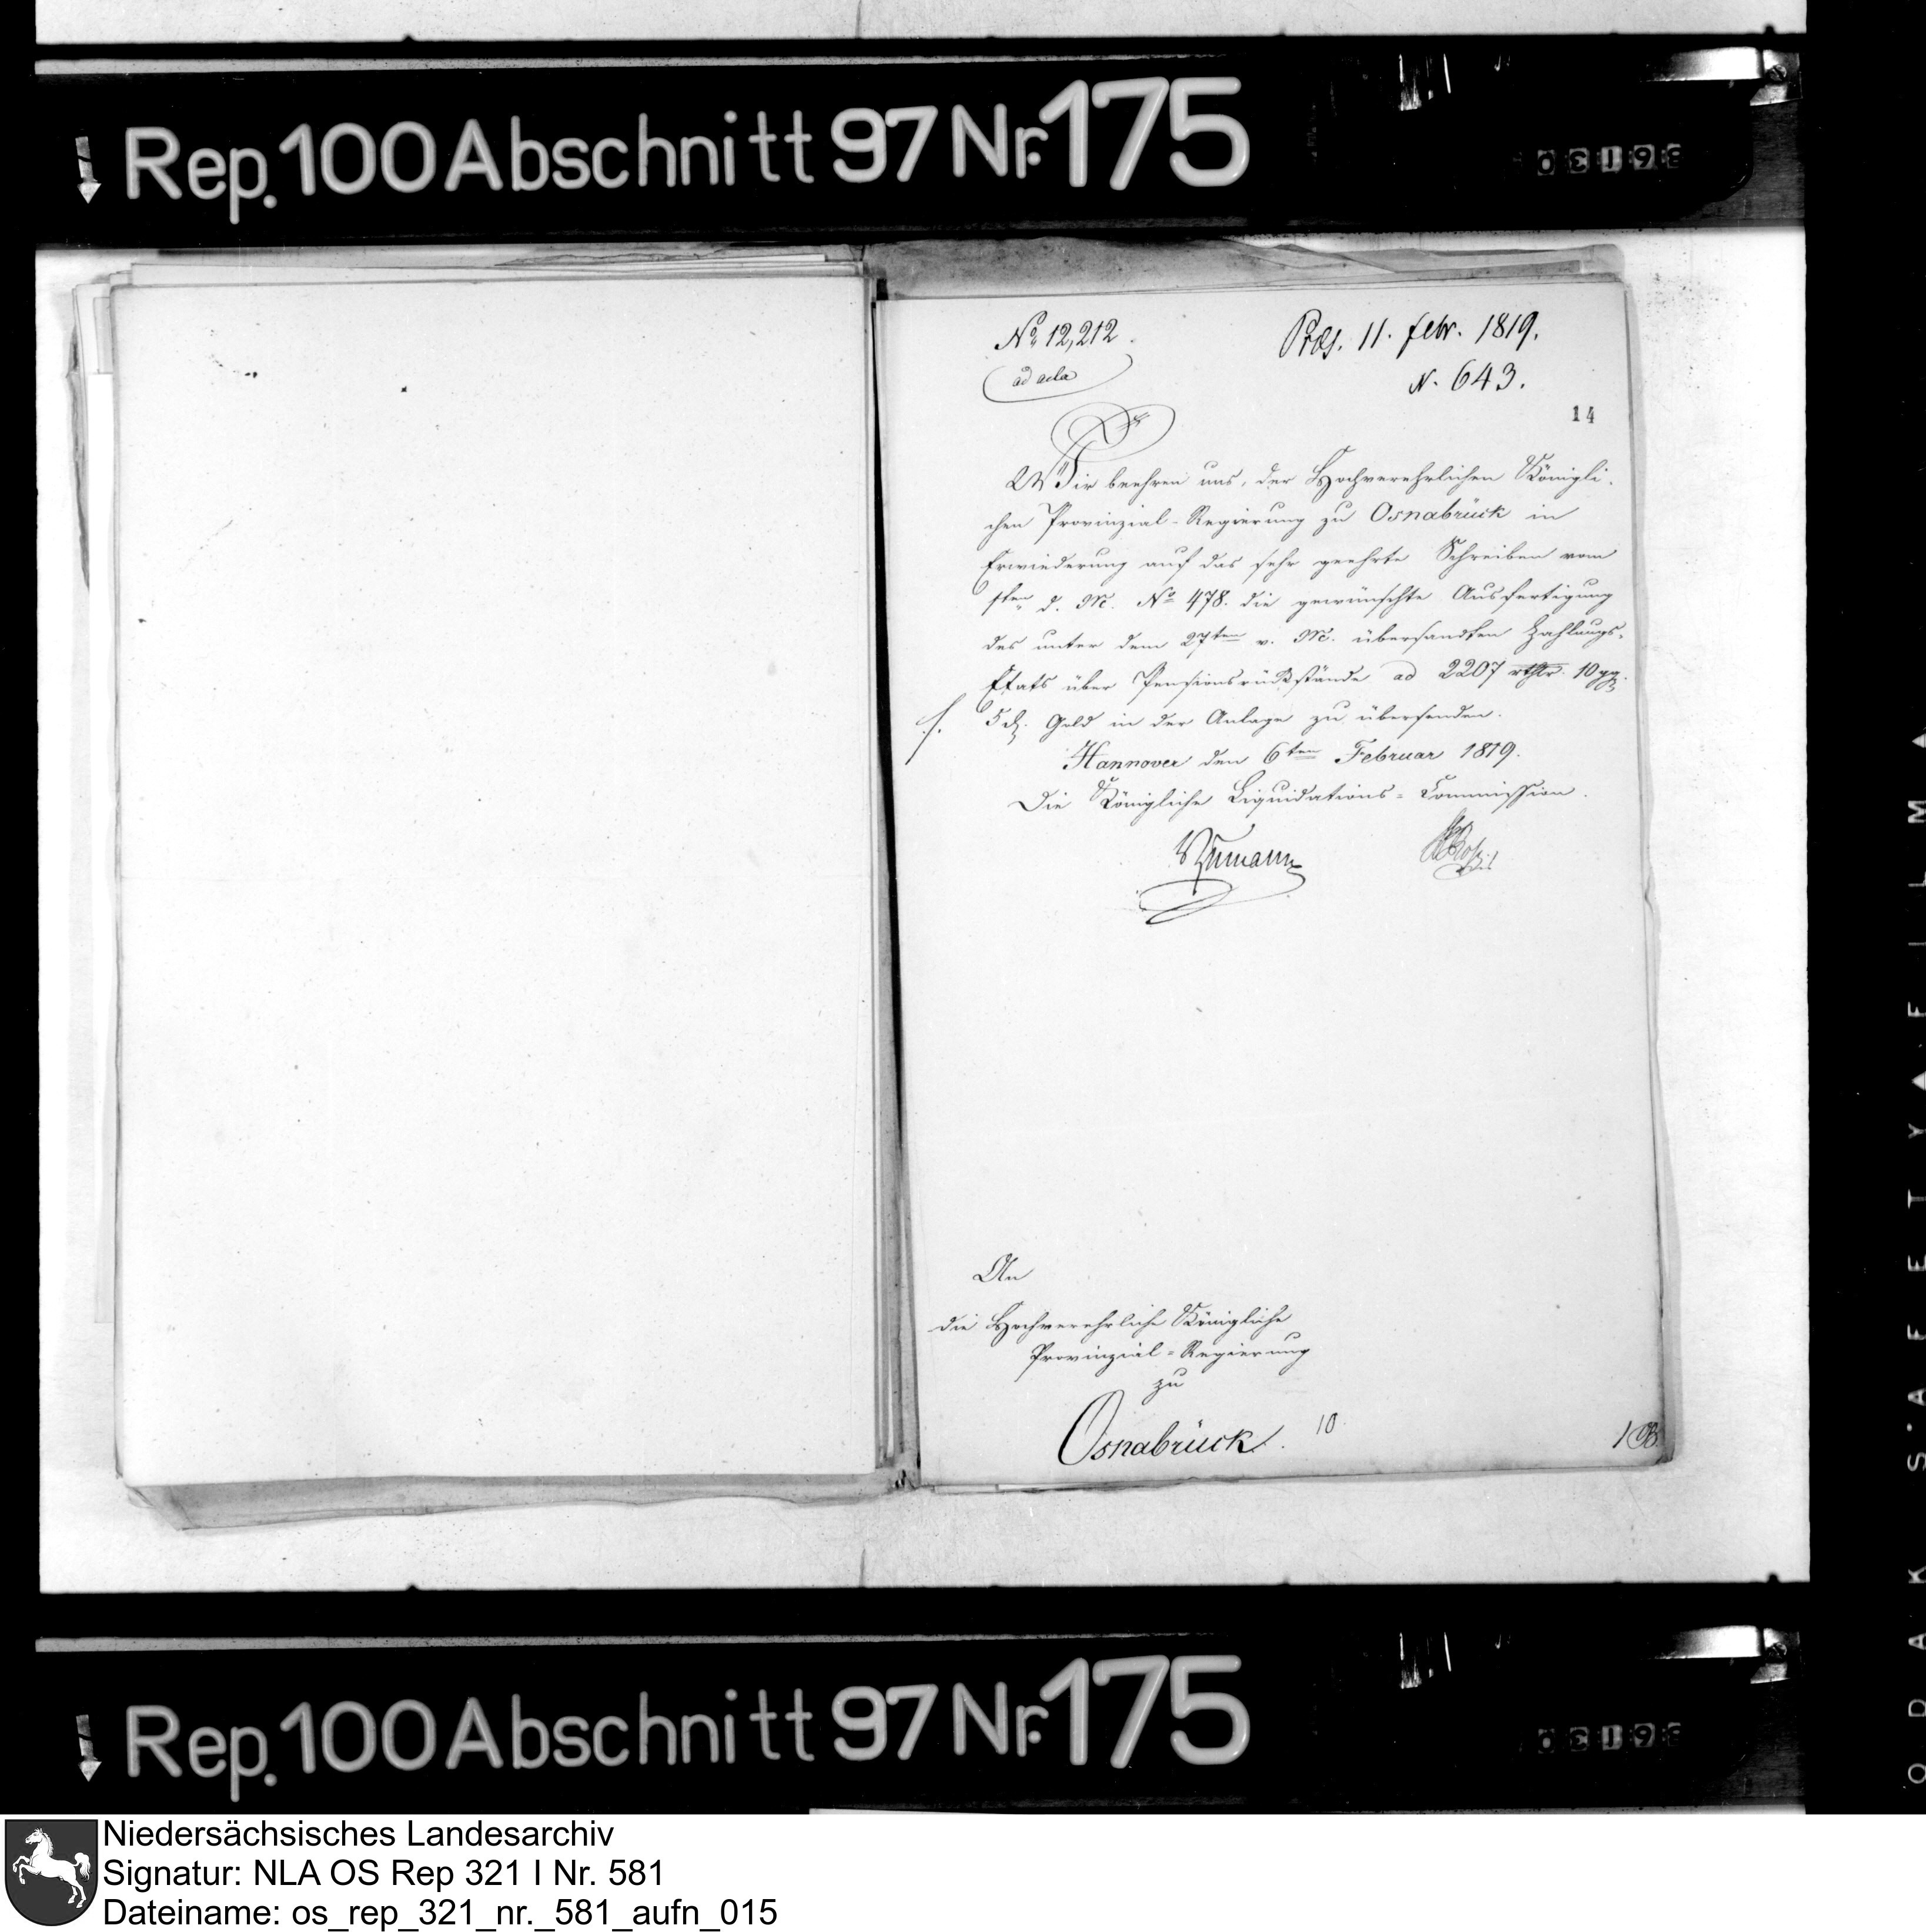 Rep. 100 Abschnitt 97 Nr. 175
No 12,212.
ad acta
Präs. 11. febr. 1819.
N. 643.
14
Wir beehren uns, der Hochverehrlichen Königli-
chen Provinzial-Regierung zu Osnabrück in
Erwiederung auf das sehr geehrte Schreiben vom
sten d. M. No 478. die gewünschte Ausfertigung
des unter dem 27ten v. M. übersandten Zahlungs-
Etats über Pensionsrückstände ad 2207 rthlr. 10 gg.
5 d. Gold in der Anlage zu übersenden.
Hannover den 6ten Februar 1819.
Die Königliche Liquidations-Commission.
An
die Hochverehrliche Königliche
Provinzial-Regierung
zu
Osnabrück.
10
Rep. 100 Abschnitt 97 Nr. 175
Niedersächsisches Landesarchiv
Signatur: NLA OS Rep 321 I Nr. 581
Dateiname: os_rep_321_nr._581_aufn_015